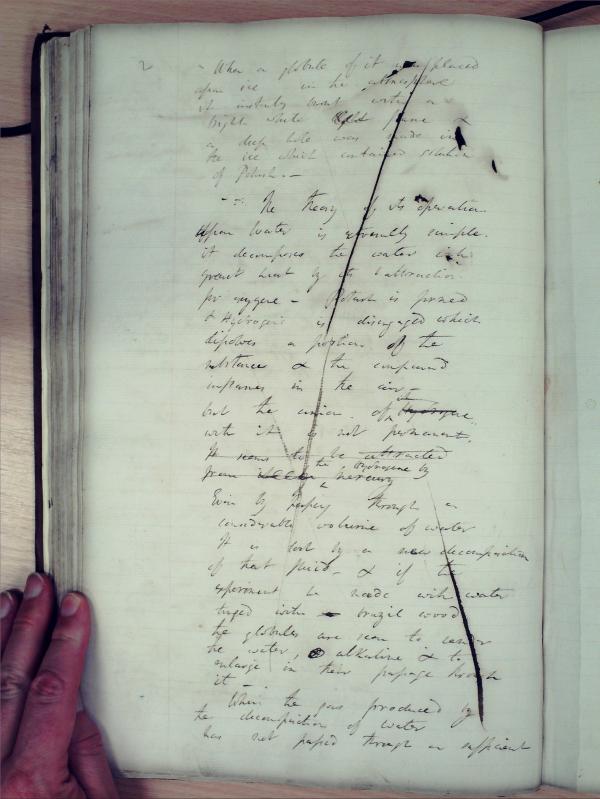 2
- When a globule of it was placed
upon ice in the atmosphere
it instantly burnt with a
bright white flame &
a deep hole was made in
the ice which contained solution
of Potash. -
- The theory of its operation
upon Water is extremely simple.
it decomposes the water with
great heat by its attraction
for oxygene - Potash is formed
& Hydrogene is disengaged which
disolves a portion of the
substance & the compound
inflames in the air -
but the union of it Hydrogene
with it is not permanent,
It seems to be abstracted
from the Hydrogene by mercury
Even by passing through a
considerable volume of water
It is lost by a new decomposition
of that fluid - & if the
experiment be made with water
tinged with brazil wood
the globules are seen to render
the water, alkaline & to
enlarge in their passage through
it -
When the gas produced by
the decomposition of water
has not passed through a sufficient